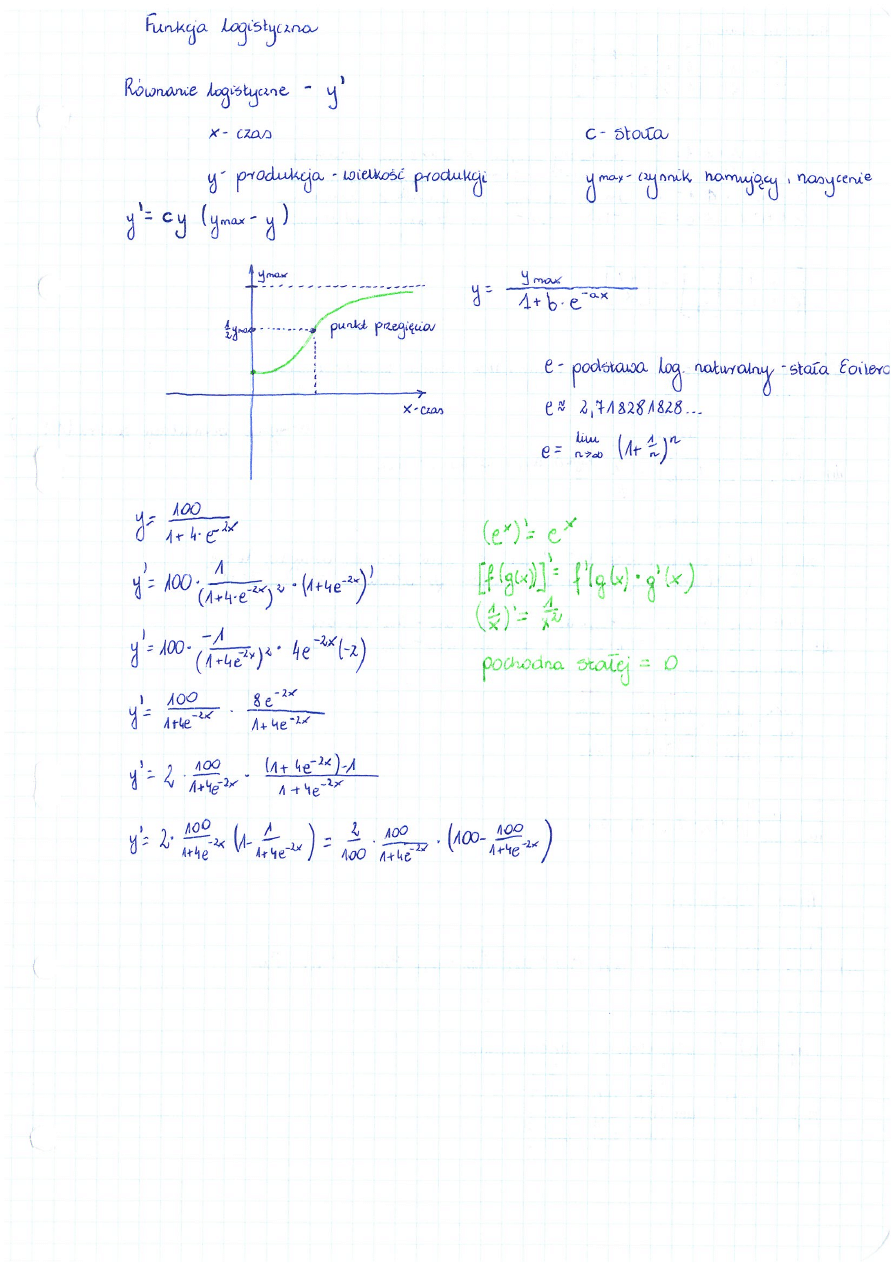 Funkcja logistyczna
Równanie logistyczne - y'
x - czas
c - stała
y - produkcja - wielkość produkcji
ymax - czynnik hamujący, nasycenie
y' = cy (ymax - y)
ymax
1/2 ymax
punkt przegięcia
x - czas
y = ymax / (1 + b·e^-ax)
e - podstawa log. naturalny - stała Eoilera
e ≈ 2,718281828...
e = lim n→∞ (1 + 1/n)^n
y = 100 / (1 + 4·e^-2x)
y' = 100 · 1/(1+4·e^-2x)^2 · (1+4e^-2x)'
y' = 100 · -1/(1+4e^-2x)^2 · 4e^-2x (-2)
y' = 100/(1+4e^-2x) · 8e^-2x/(1+4e^-2x)
y' = 2 · 100/(1+4e^-2x) · ((1+4e^-2x)-1)/(1+4e^-2x)
y' = 2 · 100/(1+4e^-2x) (1 - 1/(1+4e^-2x)) = 2/100 · 100/(1+4e^-2x) · (100 - 100/(1+4e^-2x))
(e^x)' = e^x
[f(g(x)]' = f'(g(x) · g'(x)
(1/x)' = 1/x^2
pochodna stałej = 0